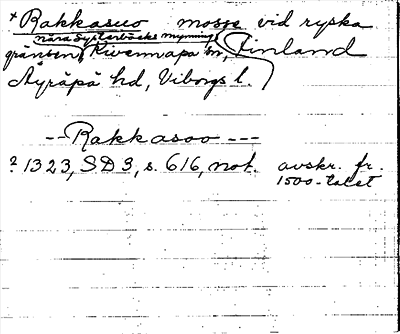 * Rakkasuo mosse vid ryska
nära Systerbäcks mynning
gränsen, Kivennapa sn, Finland
Äyräpä hd, Viborgs l.
-- Rakkasoo ---
? 1323, SD 3, s. 616, not. avskr. fr.
1500-talet